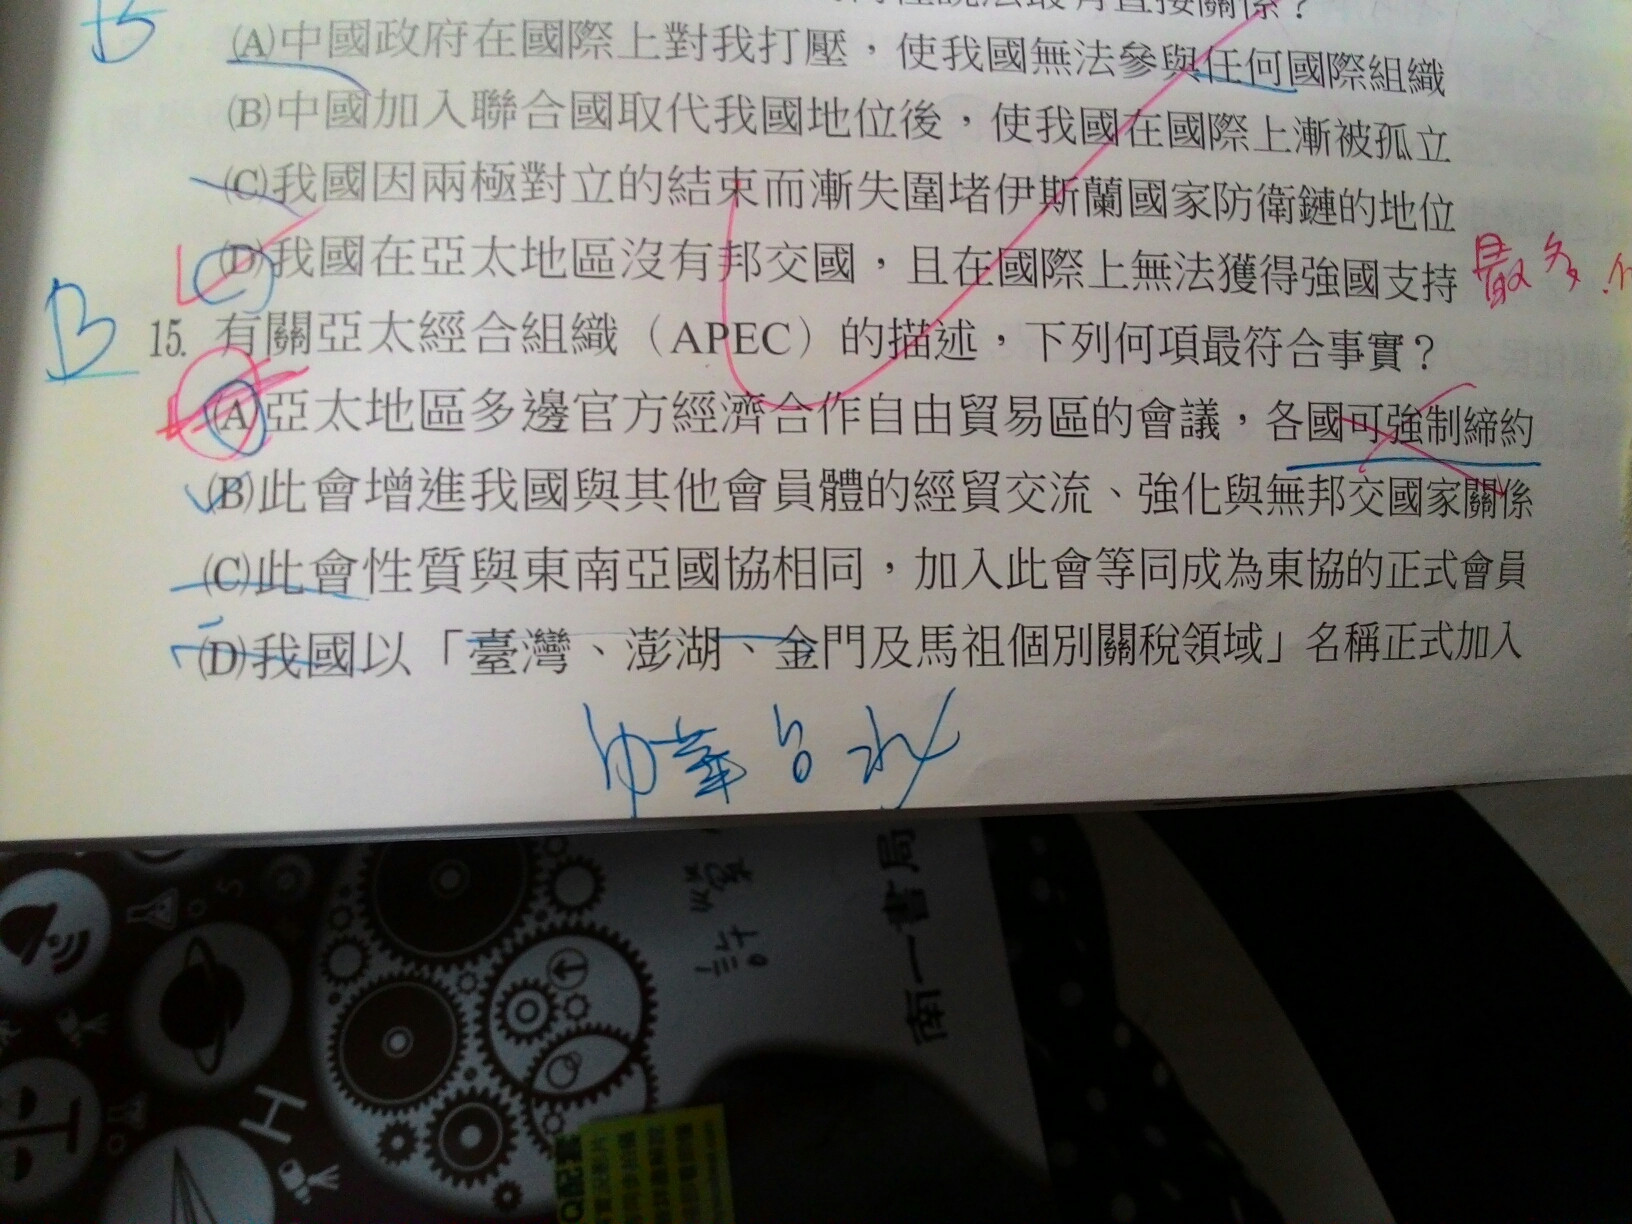 直接關係？
B
(A)中國政府在國際上對我打壓，使我國無法參與任何國際組織
(B)中國加入聯合國取代我國地位後，使我國在國際上漸被孤立
(C)我國因兩極對立的結束而漸失圍堵伊斯蘭國家防衛鏈的地位
(D)我國在亞太地區沒有邦交國，且在國際上無法獲得強國支持
最多
B
15. 有關亞太經合組織（APEC）的描述，下列何項最符合事實？
(A)亞太地區多邊官方經濟合作自由貿易區的會議，各國可強制締約
(B)此會增進我國與其他會員體的經貿交流、強化與無邦交國家關係
(C)此會性質與東南亞國協相同，加入此會等同成為東協的正式會員
(D)我國以「臺灣、澎湖、金門及馬祖個別關稅領域」名稱正式加入
中華台北
南一書局
H